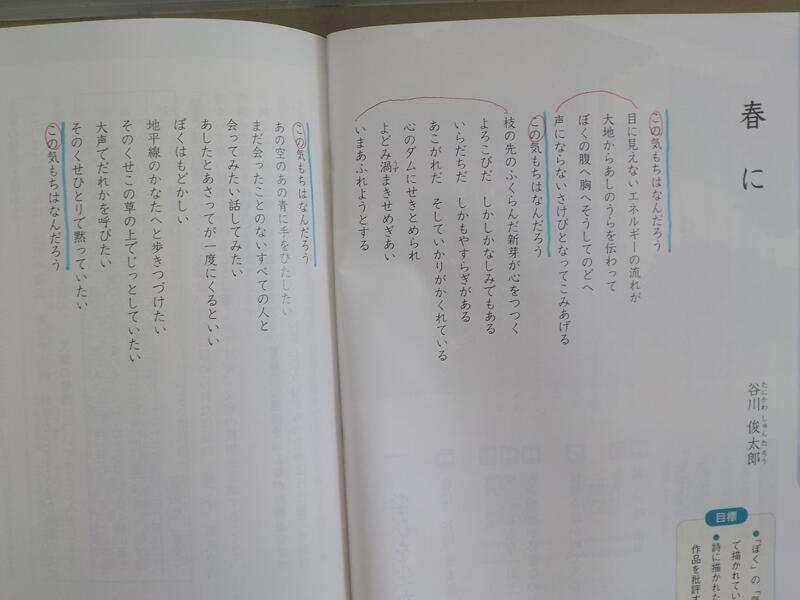 春に
谷川 俊太郎
たにかわ しゅんたろう
この気もちはなんだろう
目に見えないエネルギーの流れが
大地からあしのうらを伝わって
ぼくの腹へ胸へそうしてのどへ
声にならないさけびとなってこみあげる
この気もちはなんだろう
枝の先のふくらんだ新芽が心をつつく
よろこびだ しかしかなしみでもある
いらだちだ しかもやすらぎがある
あこがれだ そしていかりがかくれている
心のダムにせきとめられ
よどみ渦まきせめぎあい
うず
いまあふれようとする
この気もちはなんだろう
あの空のあの青に手をひたしたい
まだ会ったことのないすべての人と
会ってみたい話してみたい
あしたとあさってが一度にくるといい
ぼくはもどかしい
地平線のかなたへと歩きつづけたい
そのくせこの草の上でじっとしていたい
大声でだれかを呼びたい
そのくせひとりで黙っていたい
この気もちはなんだろう
目標
●「ぼく」の「
で描かれてい
●詩に描かれた
作品を批評す